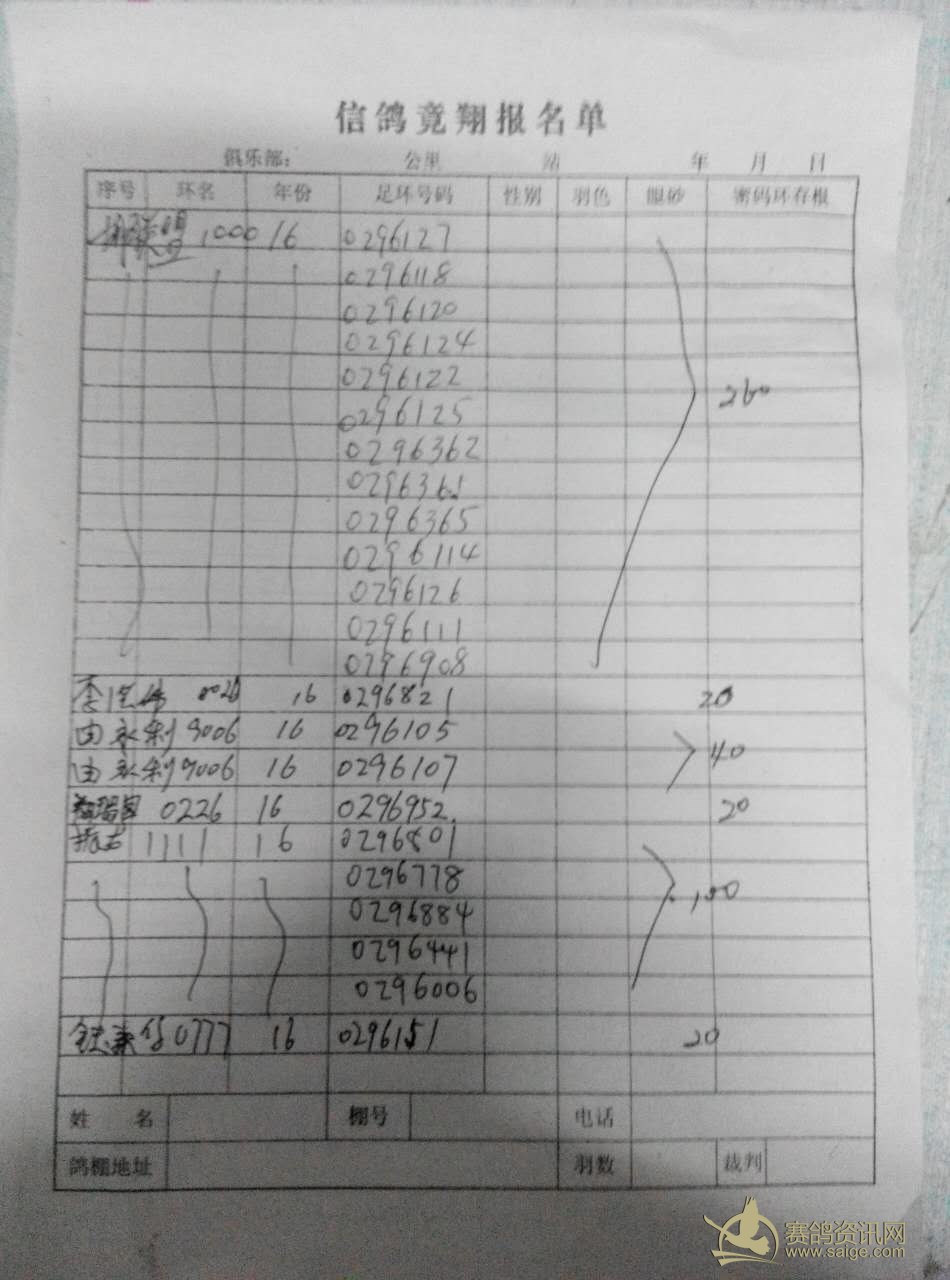 信鸽竞翔报名单
俱乐部: 公里 站 年 月 日
序号 环名 年份 足环号码 性别 羽色 眼砂 密码环存根
联盟 1000 16 0296127
0296118
0296120
0296124
0296122 260
0296125
0296362
0296361
0296365
0296114
0296126
0296111
0296908
李 16 0296821 20
由永利 9006 16 0296105
40
由永利 9006 16 0296107
0226 16 0296952 20
1111 16 0296801
0296778
100
0296884
0296441
0296006
0777 16 0296151 20
姓 名 棚号 电话
鸽棚地址 羽数 裁判
赛鸽资讯网
www.saige.com